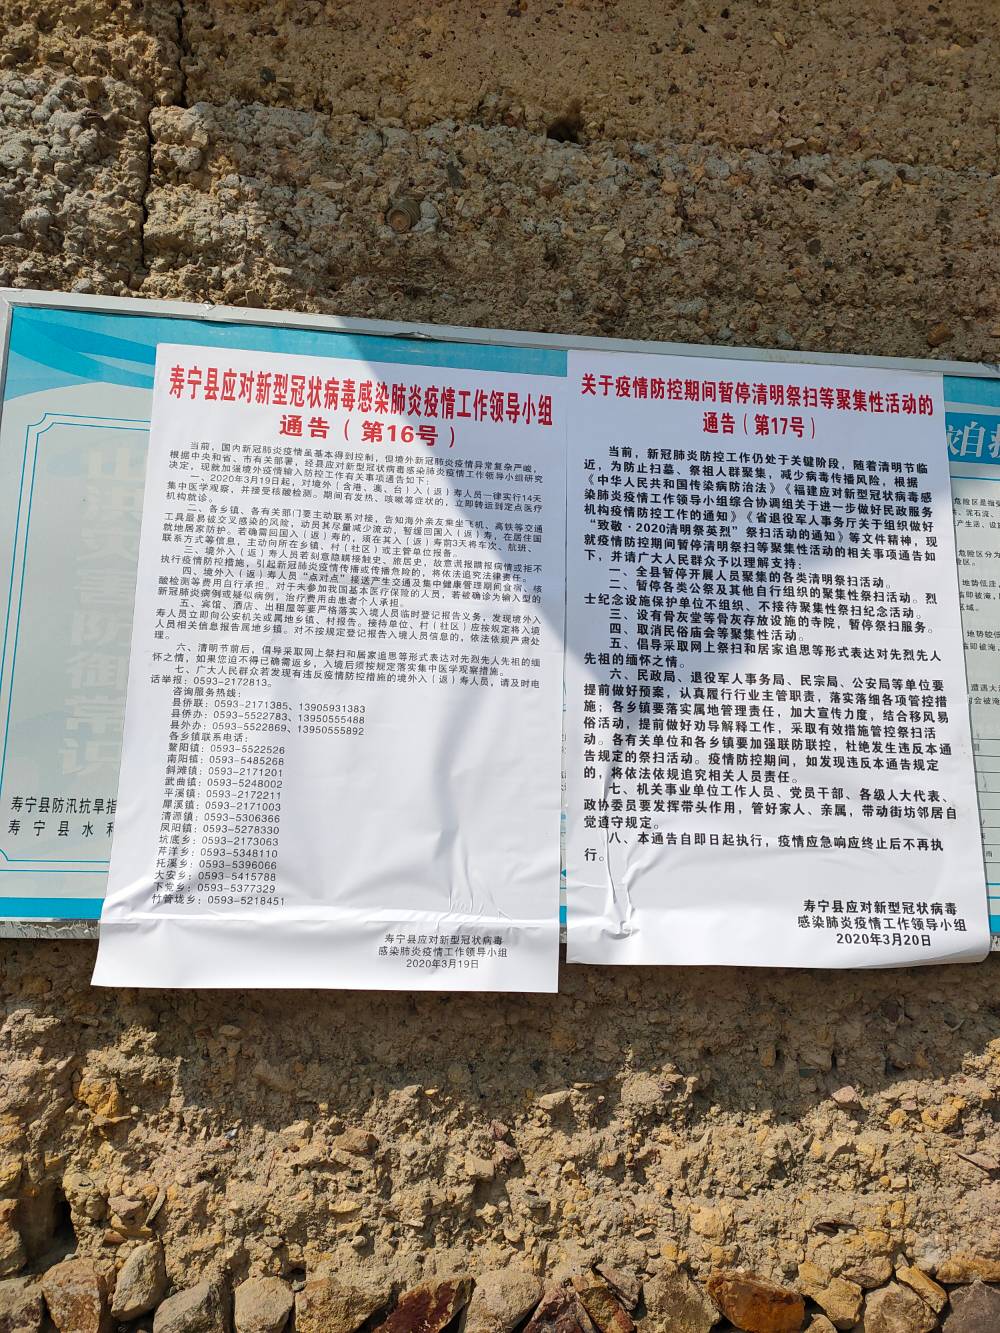 寿宁县应对新型冠状病毒感染肺炎疫情工作领导小组
通告（第16号）
当前，国内新冠肺炎疫情虽基本得到控制，但境外新冠肺炎疫情异常复杂严峻，
根据中央和省、市有关部署，经县应对新型冠状病毒感染肺炎疫情工作领导小组研究
决定，现就加强境外疫情输入防控工作有关事项通告如下：
一、2020年3月19日起，对境外（含港、澳、台）入（返）寿人员一律实行14天
集中医学观察，并接受核酸检测。期间有发热、咳嗽等症状的，立即转运到定点医疗
机构就诊。
二、各乡镇、各有关部门要主动联对接，告知海外亲友乘坐飞机、高铁等交通
工具最易被交叉感染的风险，动员其尽量减少流动，暂缓回国入（返）寿，在居住国
就地居家防护。若确需回国入（返）寿的，须在其入（返）寿前3天将车次、航班、
联系方式等信息，主动向所在乡镇、村（社区）或主管单位报备。
三、境外入（返）寿人员若刻意隐瞒接触史、旅居史，故意谎报瞒报病情或拒不
执行疫情防控措施，引起新冠肺炎疫情传播或传播危险的，将依法追究法律责任。
四、境外入（返）寿人员“点对点”接送产生交通及集中健康管理期间食宿、核
酸检测等费用自行承担。对于未参加我国基本医疗保险的人员，若被确诊为输入型的
新冠肺炎病例或疑似病例，治疗费用由患者个人承担。
五、宾馆、酒店、出租屋等要严格落实入境人员临时登记报告义务，发现境外入
寿人员立即向公安机关或属地乡镇、村报告。接待单位，村（社区）应按规定将入境
人员相关信息报告属地乡镇。对不按规定登记报告入境人员信息的，依法依规严肃处
理。
六、清明节前后，倡导采取网上祭扫和居家追思等形式表达对先烈先人先祖的缅
怀之情，如果您迫不得已确需返乡，入境后须按规定落实集中医学观察措施。
七、广大人民群众若发现有违反疫情防控措施的境外入（返）寿人员，请及时电
话举报：0593-2172813。
咨询服务热线：
县侨联：0593-2171385、13905931383
县侨办：0593-5522783、13950555488
县外办：0593-5522869、13950555892
各乡镇联系电话：
鳌阳镇：0593-5522526
南阳镇：0593-5485268
斜滩镇：0593-2171201
武曲镇：0593-5248002
平溪镇：0593-2172211
犀溪镇：0593-2171003
清源镇：0593-5306366
凤阳镇：0593-5278330
坑底乡：0593-2173063
芹洋乡：0593-5348110
托溪乡：0593-5396066
大安乡：0593-5415788
下党乡：0593-5377329
竹管垅乡：0593-5218451
寿宁县应对新型冠状病毒
感染肺炎疫情工作领导小组
2020年3月19日
关于疫情防控期间暂停清明祭扫等聚集性活动的
通告（第17号）
当前，新冠肺炎防控工作仍处于关键阶段，随着清明节临
近，为防止扫墓、祭祖人群聚集，减少病毒传播风险，根据
《中华人民共和国传染病防治法》《福建应对新型冠状病毒感
染肺炎疫情工作领导小组综合协调组关于进一步做好民政服务
机构疫情防控工作的通知》《省退役军人事务厅关于组织做好
“致敬·2020清明祭英烈”祭扫活动的通知》等文件精神，现
就疫情防控期间暂停清明祭扫等聚集性活动的相关事项通告如
下，并请广大人民群众予以理解支持：
一、全县暂停开展人员聚集的各类清明祭扫活动。
二、暂停各类公祭及其他自行组织的聚集性祭扫活动。烈
士纪念设施保护单位不组织、不接待聚集性祭扫纪念活动。
三、设有骨灰堂等骨灰存放设施的寺院，暂停祭扫服务。
四、取消民俗庙会等聚集性活动。
五、倡导采取网上祭扫和居家追思等形式表达对先烈先人
先祖的缅怀之情。
六、民政局、退役军人事务局、民宗局、公安局等单位要
提前做好预案，认真履行行业主管职责，落实落细各项管控措
施；各乡镇要落实属地管理责任，加大宣传力度，结合移风易
俗活动，提前做好劝导解释工作，采取有效措施管控祭扫活
动。各有关单位和各乡镇要加强联防联控，杜绝发生违反本通
告规定的祭扫活动。疫情防控期间，如发现违反本通告规定
的，将依法依规追究相关人员责任。
七、机关事业单位工作人员、党员干部、各级人大代表、
政协委员要发挥带头作用，管好家人、亲属，带动街坊邻居自
觉遵守规定。
八、本通告自即日起执行，疫情应急响应终止后不再执
行。
寿宁县应对新型冠状病毒
感染肺炎疫情工作领导小组
2020年3月20日
寿宁县防汛抗旱指
寿宁县水利
自救